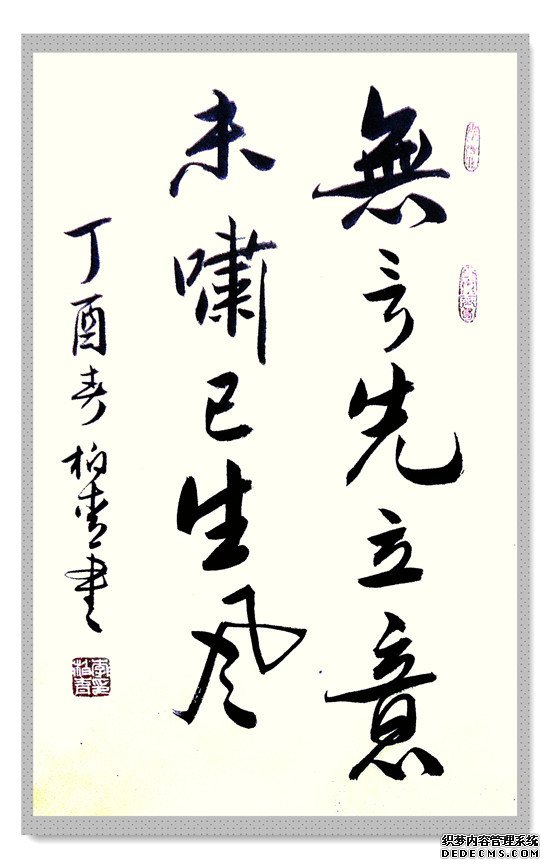 無言先立意
未嘯已生風
丁酉春柏青書
织梦内容管理系统
DEDECMS.COM